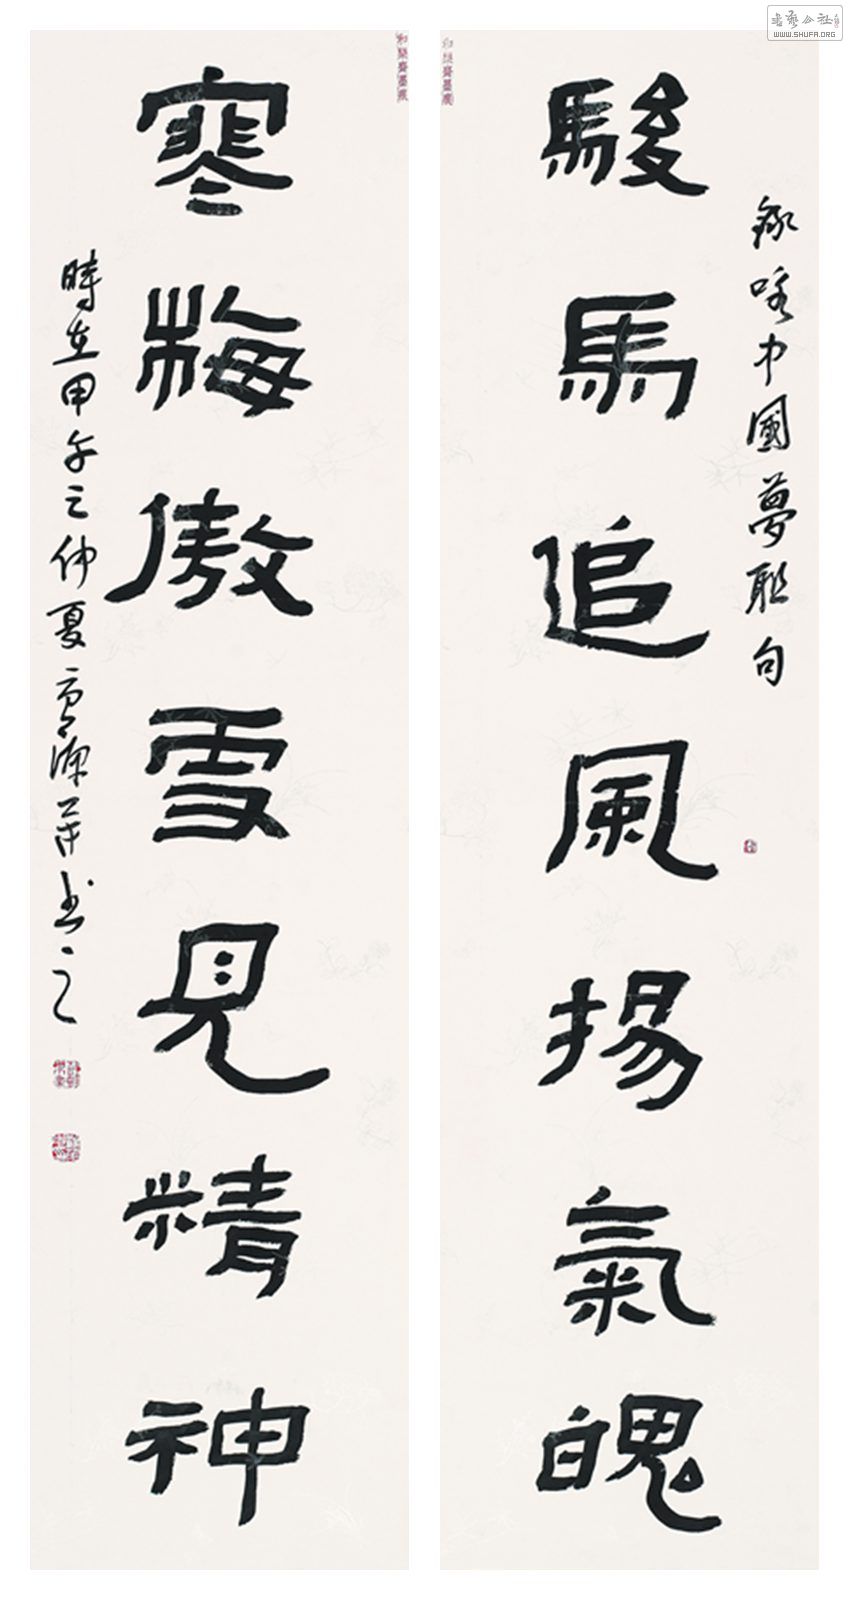 錄咏中國夢聯句
駿馬追風揚氣魄
寒梅傲雪見精神
時在甲午之仲夏
書之
書藝公社
WWW.SHUFA.ORG